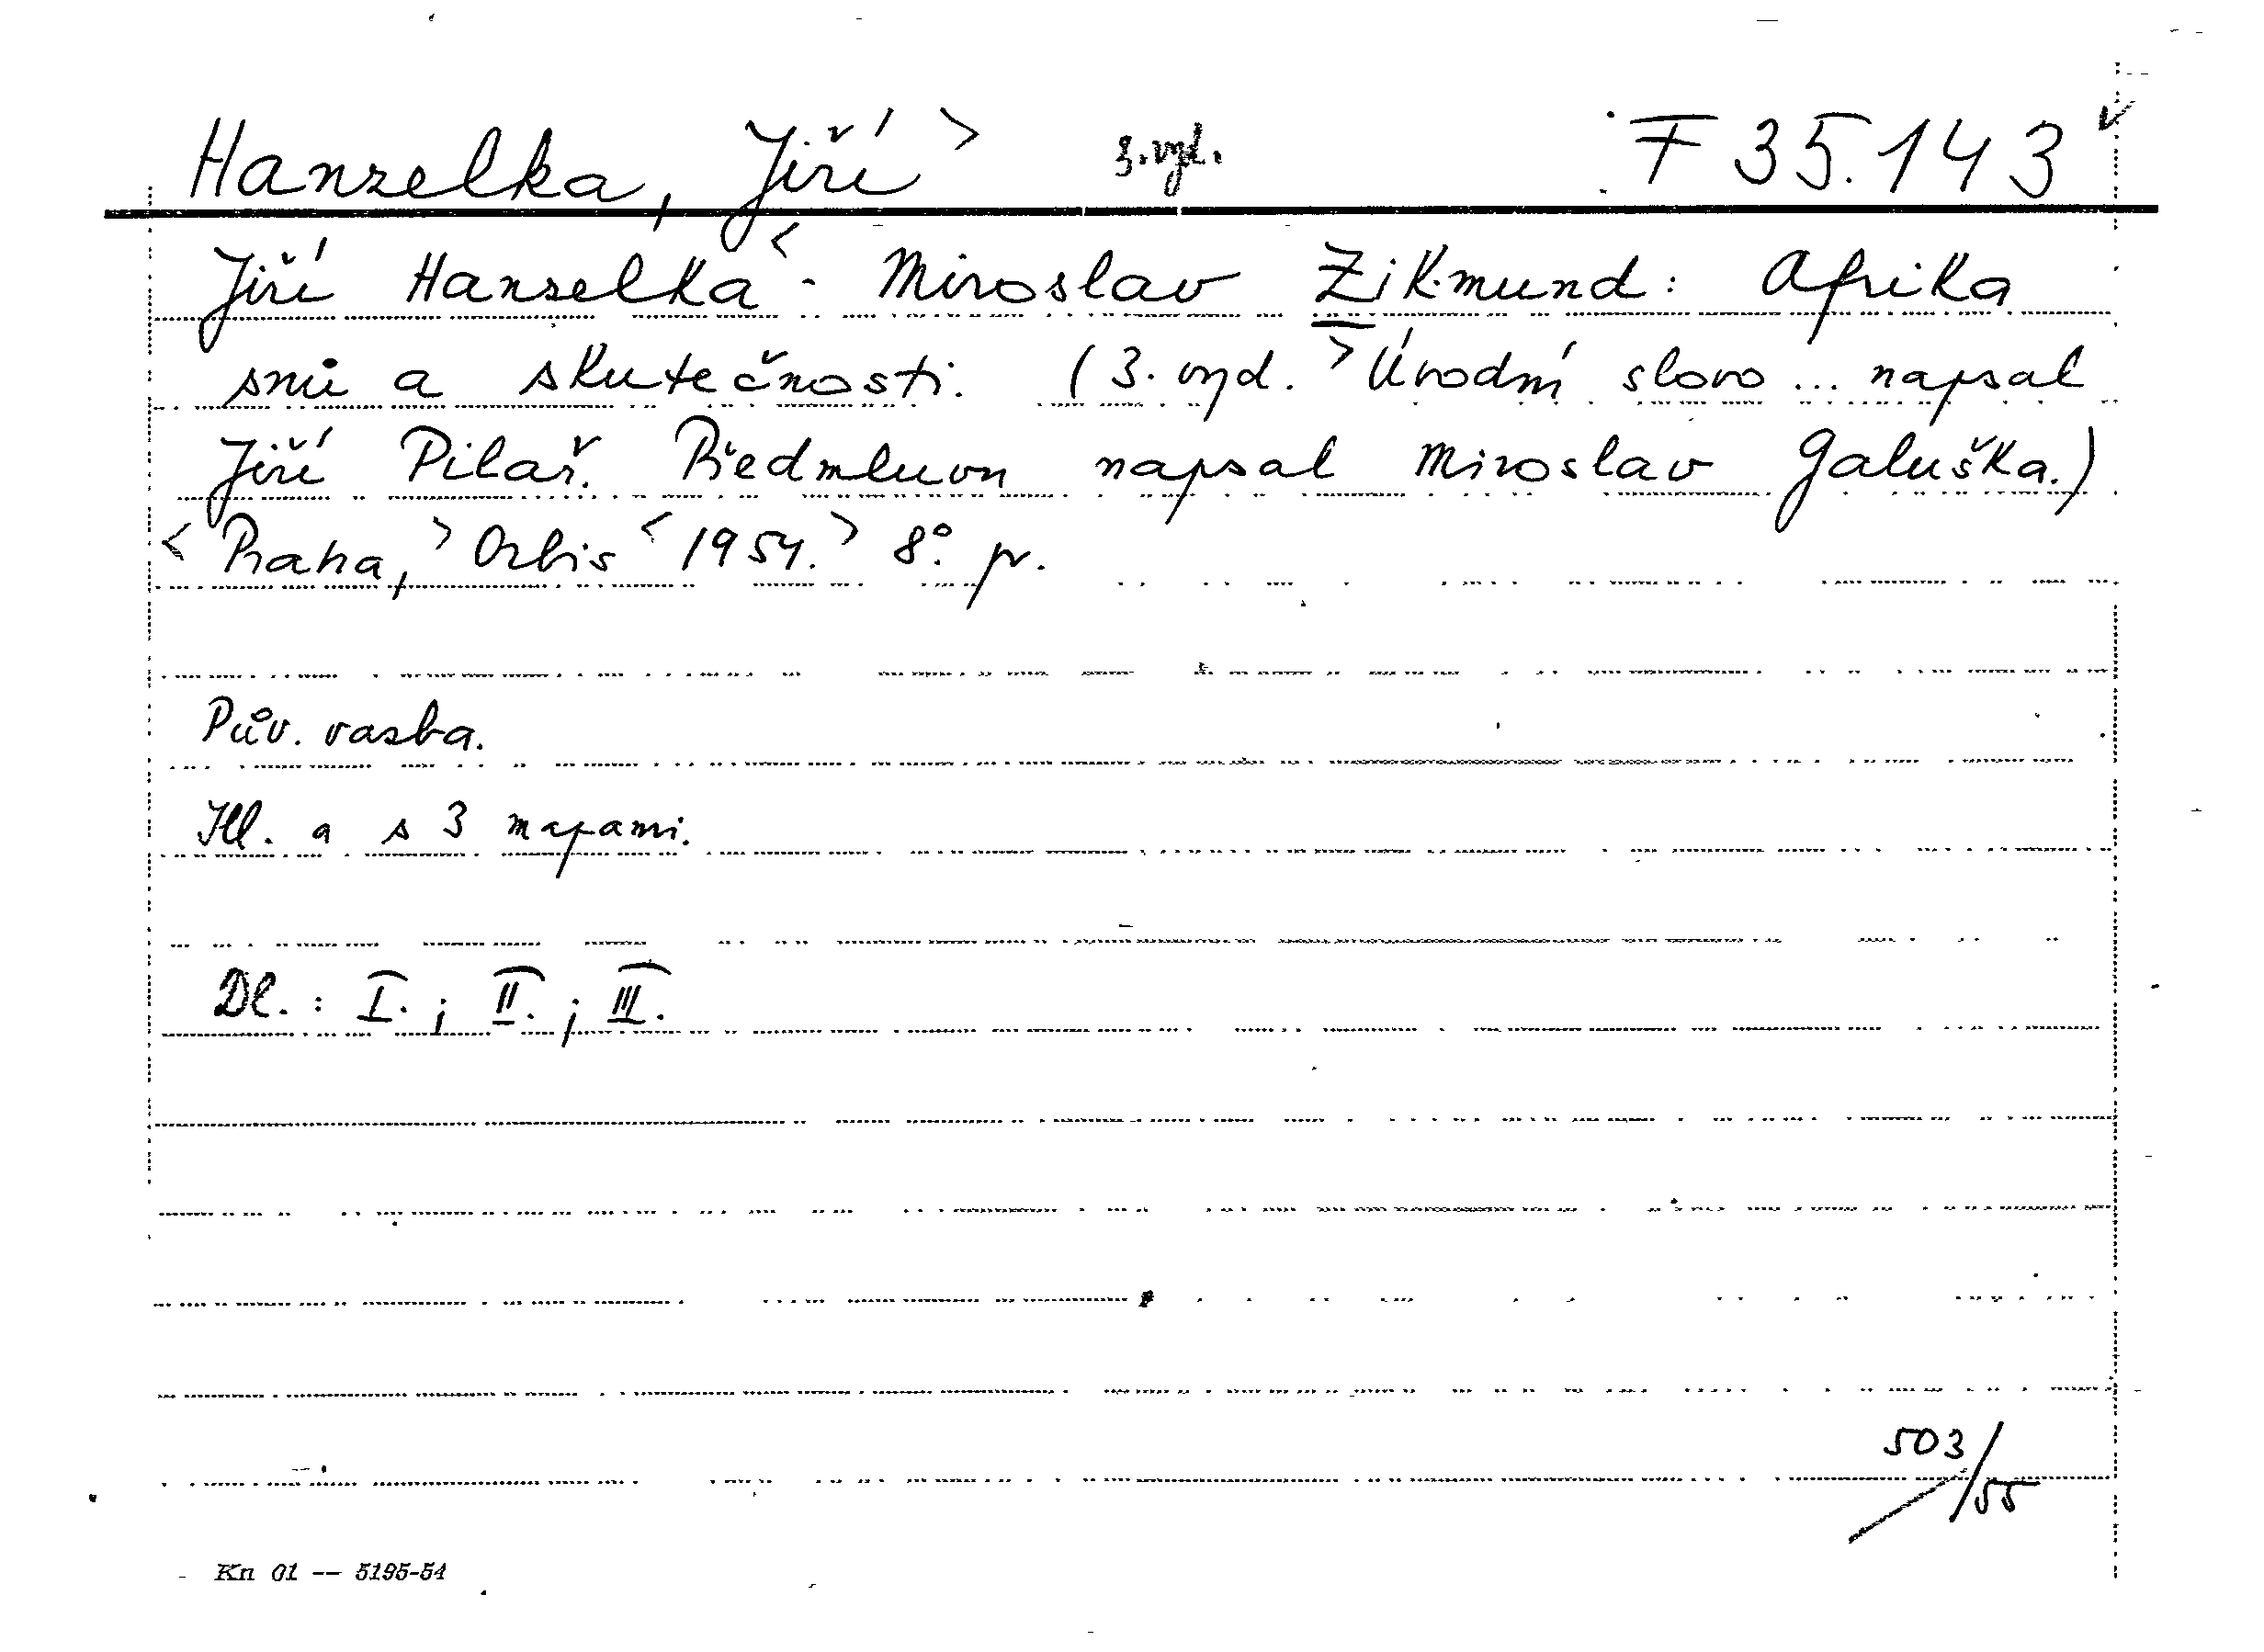 Hanzelka, Jiří > 3. vyd. F 35.143
Jiří Hanzelka < - Miroslav Zikmund: Afrika
snů a skutečnosti. (3. vyd. > Úvodní slovo ... napsal
Jiří Pilař. Předmluvu napsal Miroslav Galuška.)
< Praha, > Orbis < 1954. > 8°. pr.
Pův. vazba.
Ill. a s 3 mapami.
Dl. : I. ; II. ; III.
503/55
Kn 01 -- 5195-54